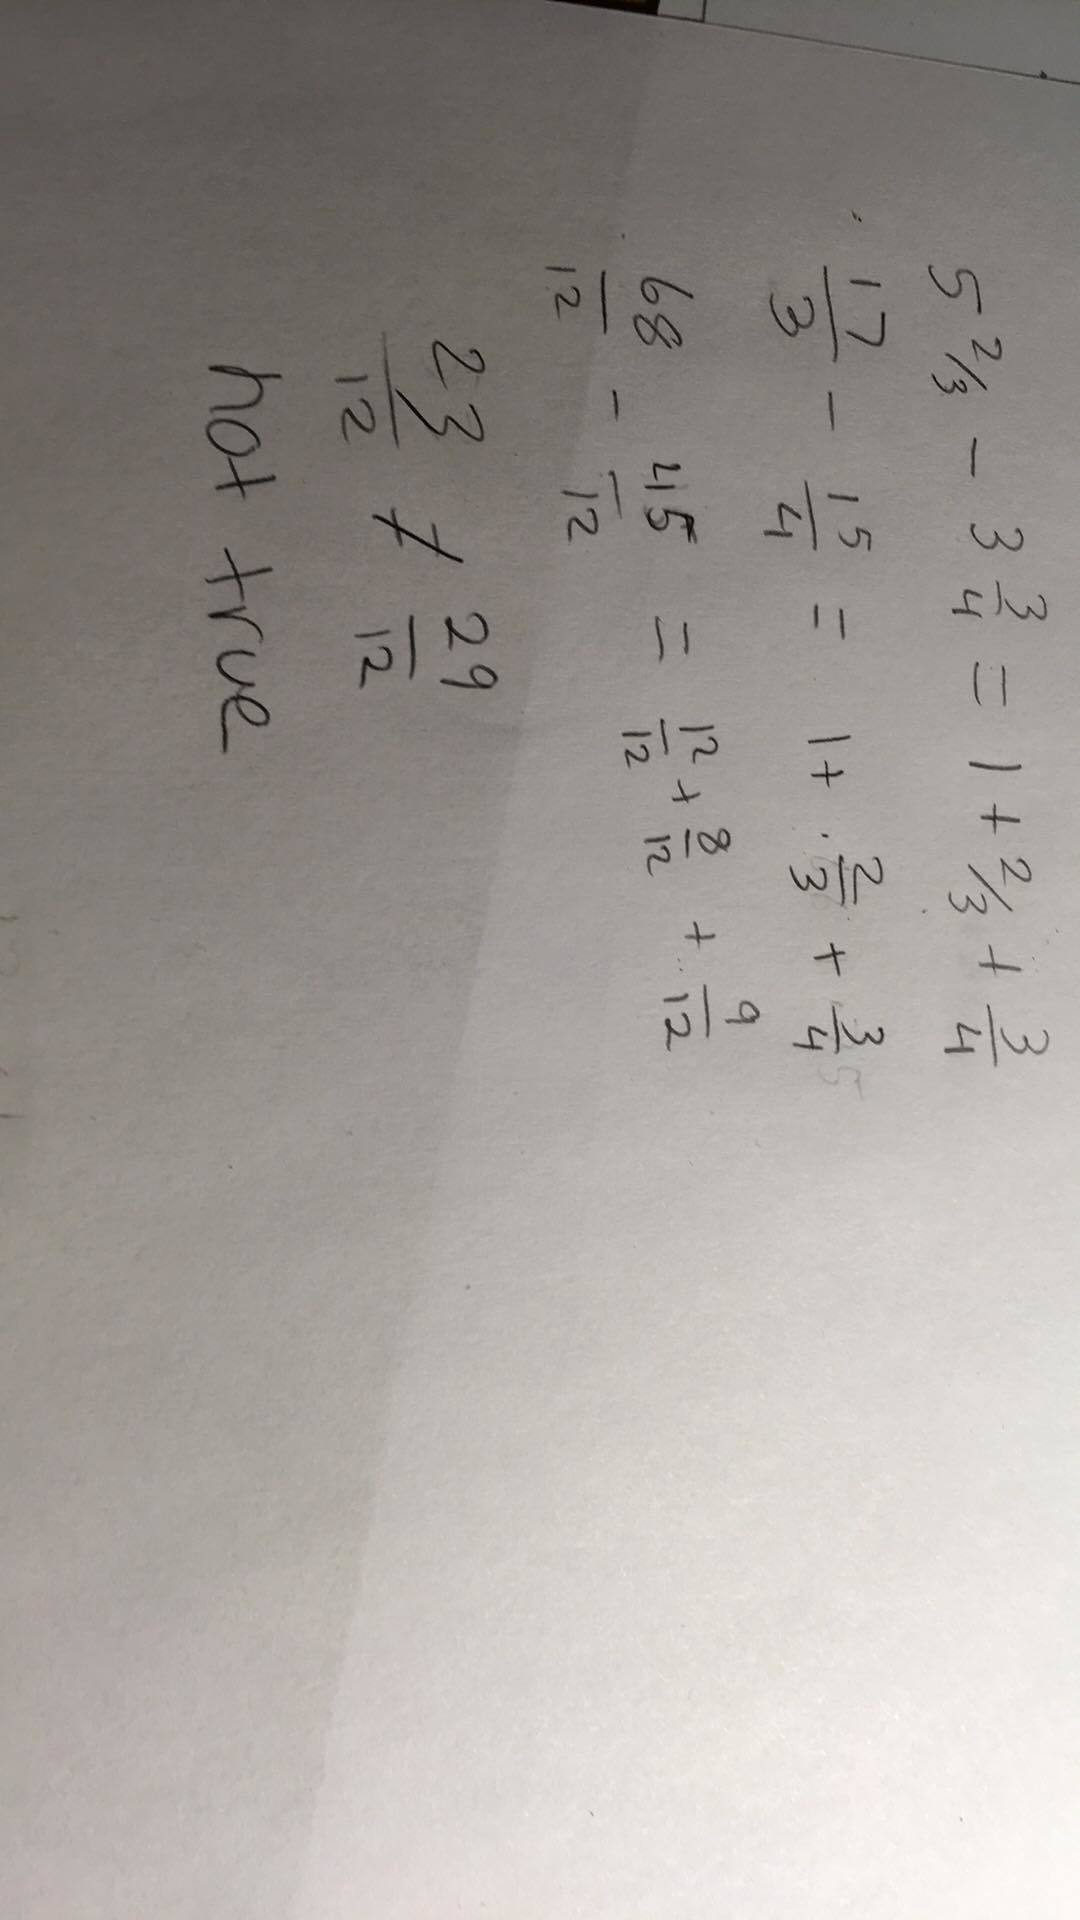 5 2/3 - 3 3/4 = 1 + 2/3 + 3/4
17/3 - 15/4 = 1 + 2/3 + 3/4
68/12 - 45/12 = 12/12 + 8/12 + 9/12
23/12 ≠ 29/12
not true